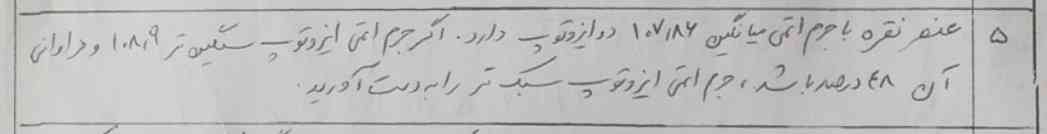 ۵ عنصر نقره با جرم اتمی میانگین ۱۰۷٫۸۶ دو ایزوتوپ دارد. اگر جرم اتمی ایزوتوپ سنگین تر ۱۰۸٫۹ و فراوانی
آن ۴۸ درصد باشد، جرم اتمی ایزوتوپ سبک تر را به دست آورید.